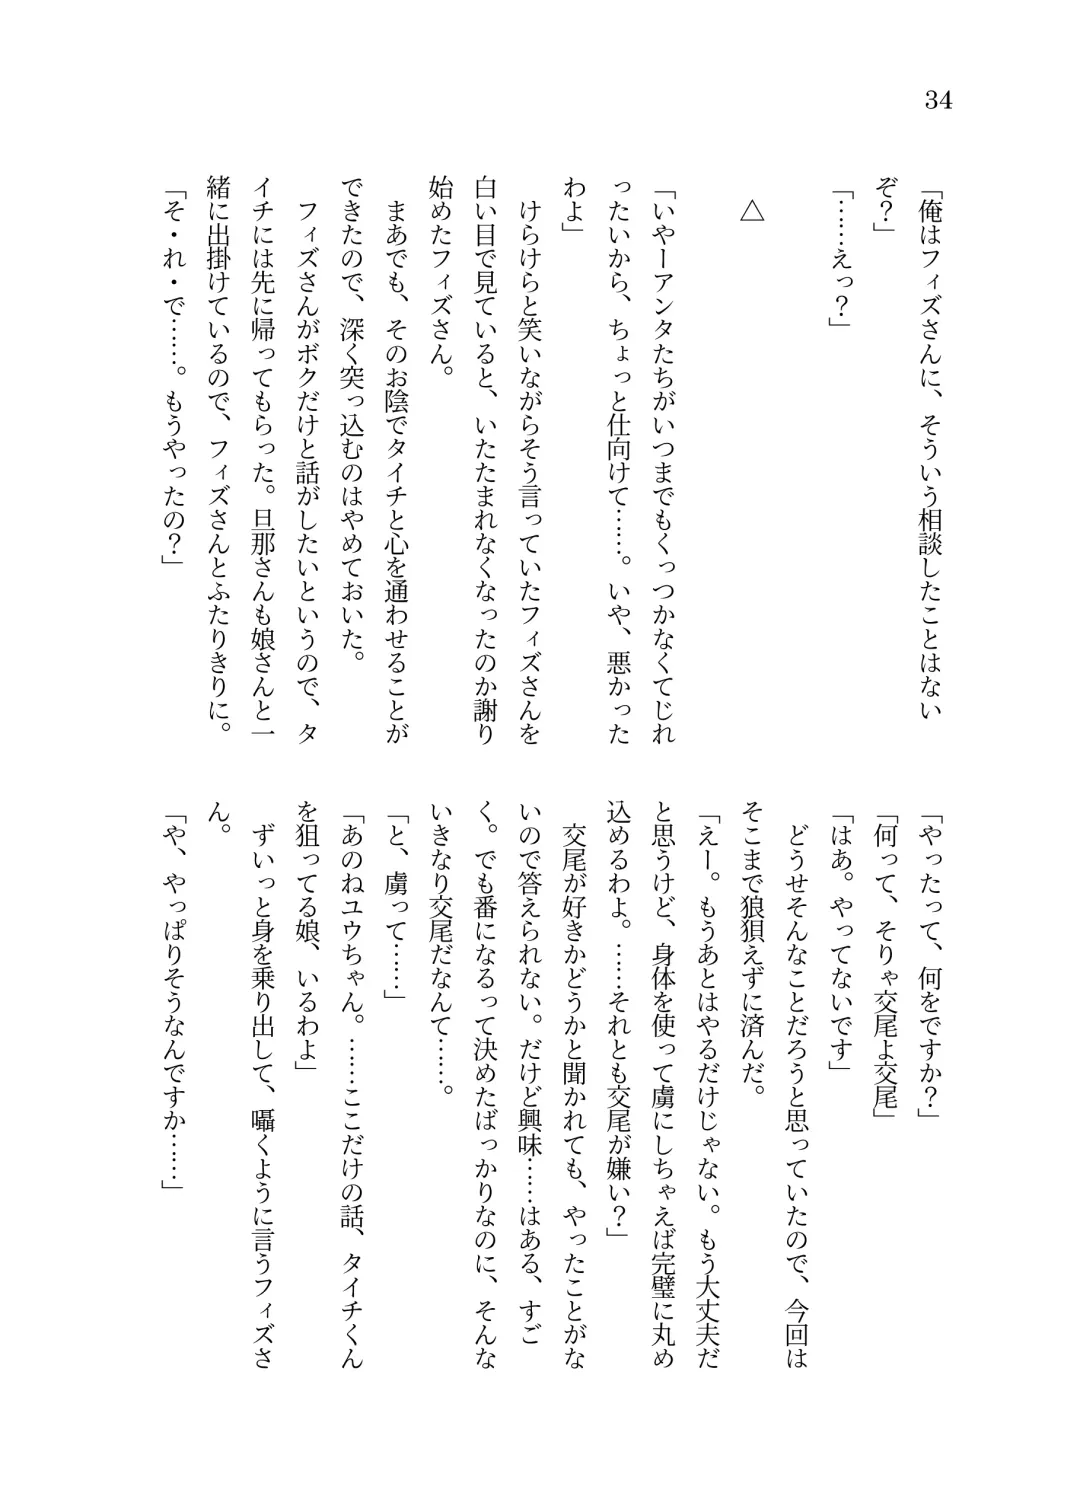 34
「俺はフィズさんに、そういう相談したことはない
ぞ？」
「……えっ？」
△
「いやーアンタたちがいつまでもくっつかなくてじれ
ったいから、ちょっと仕向けて……。いや、悪かった
わよ」
けらけらと笑いながらそう言っていたフィズさんを
白い目で見ていると、いたたまれなくなったのか謝り
始めたフィズさん。
まあでも、そのお陰でタイチと心を通わせることが
できたので、深く突っ込むのはやめておいた。
フィズさんがボクだけと話がしたいというので、タ
イチには先に帰ってもらった。旦那さんも娘さんと一
緒に出掛けているので、フィズさんとふたりきりに。
「そ・れ・で……。もうやったの？」
「やったって、何をですか？」
「何って、そりゃ交尾よ交尾」
「はあ。やってないです」
どうせそんなことだろうと思っていたので、今回は
そこまで狼狽えずに済んだ。
「えー。もうあとはやるだけじゃない。もう大丈夫だ
と思うけど、身体を使って虜にしちゃえば完璧に丸め
込めるわよ。……それとも交尾が嫌い？」
交尾が好きかどうかと聞かれても、やったことがな
いので答えられない。だけど興味……はある、すご
く。でも番になるって決めたばっかりなのに、そんな
いきなり交尾だなんて……。
「と、虜って……」
「あのねユウちゃん。……ここだけの話、タイチくん
を狙ってる娘、いるわよ」
ずいっと身を乗り出して、囁くように言うフィズさ
ん。
「や、やっぱりそうなんですか……」